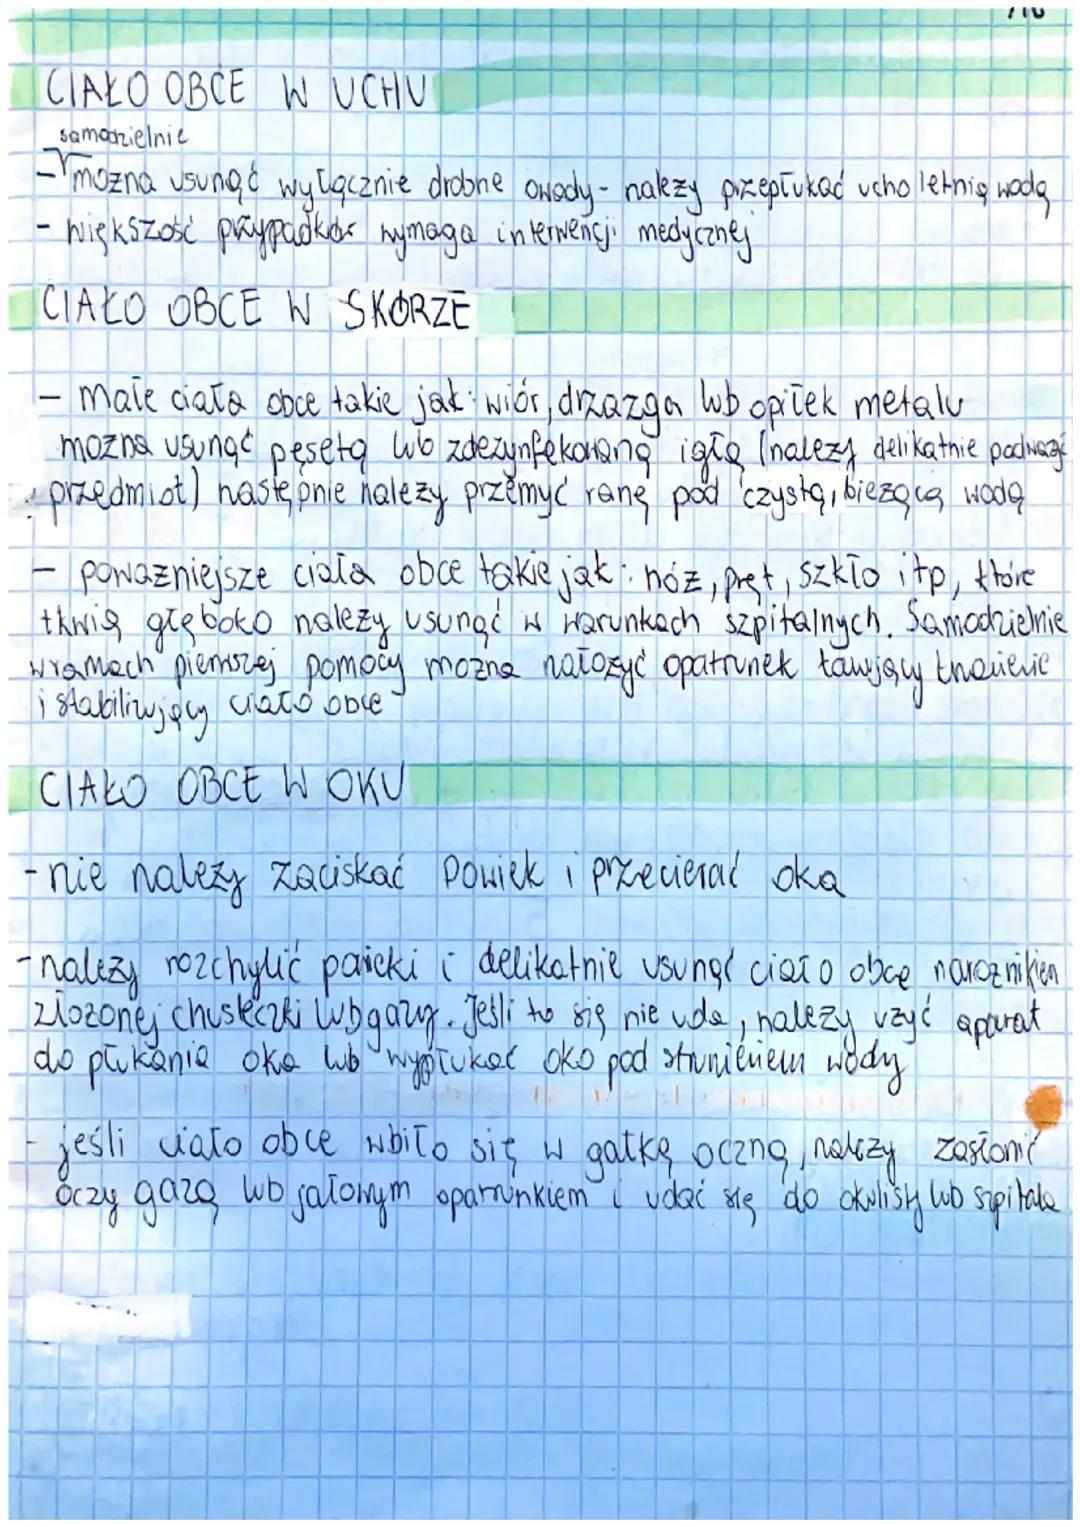 CIAŁO OBCE W UCHU
samodzielnie
- można usunąć wyłącznie drobne owady - należy przepłukać ucho letnią wodą
- większość przypadków wymaga interwencji medycznej
CIAŁO OBCE W SKÓRZE
- małe ciała obce takie jak: wiór, drzazga lub opiłek metalu
można usunąć pęsetą lub zdezynfekowaną igłą (należy delikatnie podważć
przedmiot) następnie należy przemyć ranę pod czystą, bieżącą wodą
- poważniejsze ciała obce takie jak: nóż, pręt, szkło itp, które
tkwią głęboko należy usunąć w warunkach szpitalnych. Samodzielnie
w ramach pierwszej pomocy można nałożyć opatrunek tamujący krwawienie
i stabilizujący ciało obce
CIAŁO OBCE W OKU
- nie należy zaciskać powiek i przecierać oka
- należy rozchylić powieki i delikatnie usunąć ciało obce narożnikiem
złożonej chusteczki lub gazy. Jeśli to się nie uda, należy użyć aparat
do płukania oka lub wypłukać oko pod strumieniem wody
- jeśli ciało obce wbiło się w gałkę oczną, należy zasłonić
oczy gazą lub jałowym opatrunkiem i udać się do okulisty lub szpitala